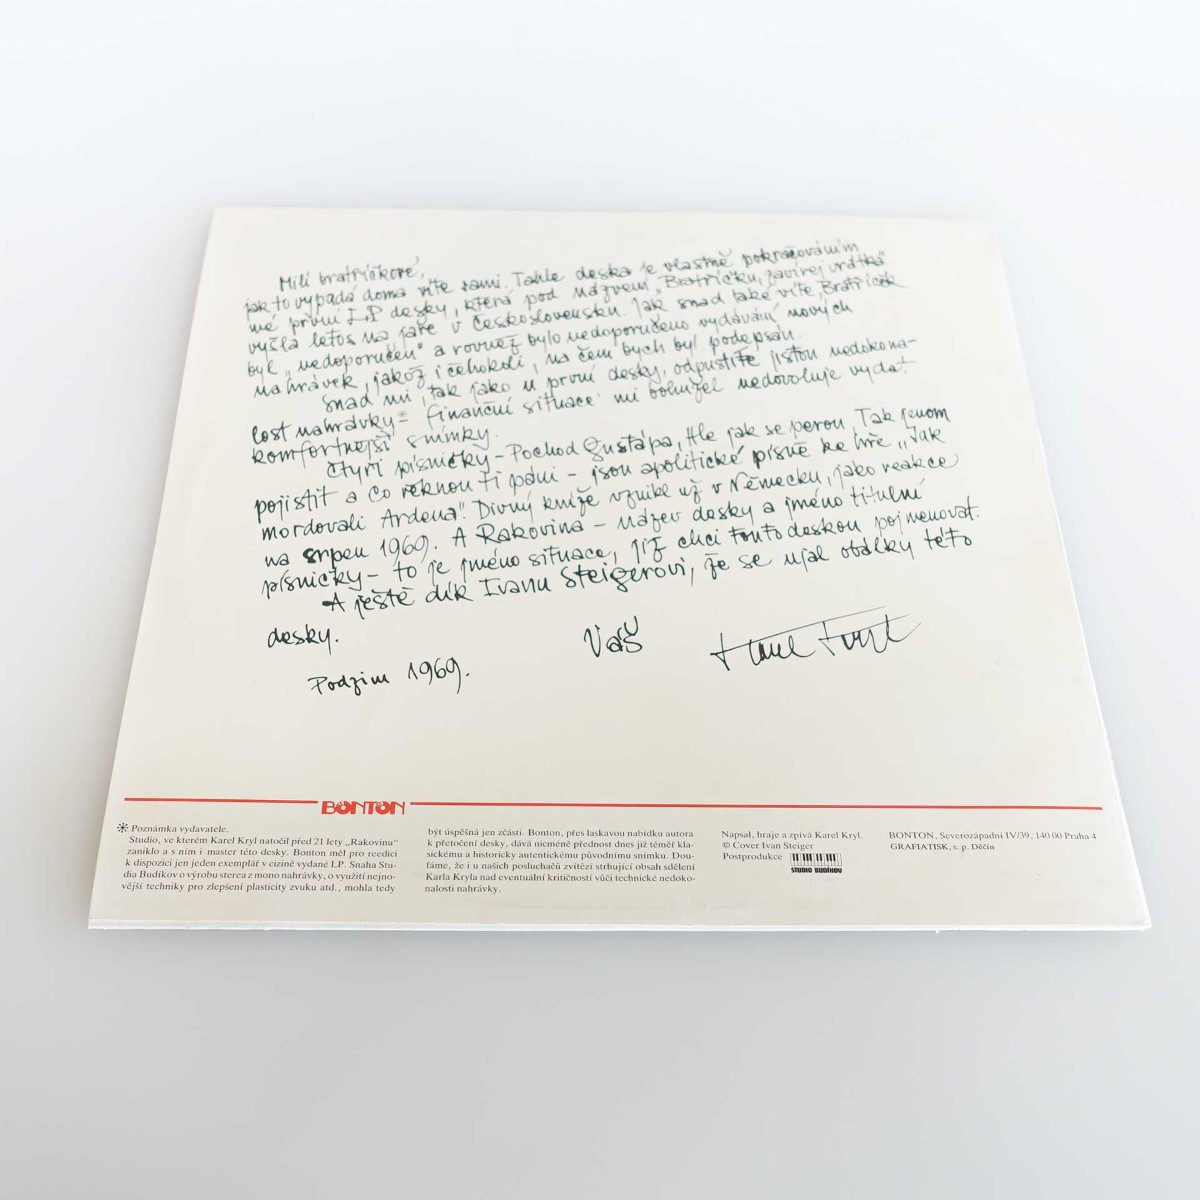 Milí bratříčkové,
jak to vypadá doma víte sami. Tahle deska je vlastně pokračováním
mé první LP desky, která pod názvem „Bratříčku, zavírej vrátka"
vyšla letos na jaře v Československu. Jak snad také víte, Bratříček
byl „nedoporučen" a rovněž bylo nedoporučeno vydávání nových
nahrávek, jakož i čehokoli, na čem bych byl podepsán.
Snad mi, tak jako u první desky, odpustíte jistou nedokona-
lost nahrávky* – finanční situace mi bohužel nedovoluje vydat
komfortnější snímky.
Čtyři písničky – Pochod Gustápa, Hle jak se perou, Tak jenom
pojistit a Co řeknou ti páni – jsou apolitické písně ke hře „Jak
mordovali Ardena". Divný kníže vznikl už v Německu, jako reakce
na srpen 1969. A Rakovina – název desky a jméno titulní
písničky – to je jméno situace, již chci touto deskou pojmenovat.
A ještě dík Ivanu Steigerovi, že se ujal obálky této
desky.
Váš Karel Kryl
Podzim 1969.
BONTON
* Poznámka vydavatele.
Studio, ve kterém Karel Kryl natočil před 21 lety „Rakovinu"
zaniklo a s ním i master této desky. Bonton měl pro reedici
k dispozici jen jeden exemplář v cizině vydané LP. Snaha Stu-
dia Budíkov o výrobu sterea z mono nahrávky, o využití nejno-
vější techniky pro zlepšení plasticity zvuku atd., mohla tedy
být úspěšná jen zčásti. Bonton, přes laskavou nabídku autora
k přetočení desky, dává nicméně přednost dnes již téměř kla-
sickému a historicky autentickému původnímu snímku. Dou-
fáme, že i u našich posluchačů zvítězí strhující obsah sdělení
Karla Kryla nad eventuální kritičností vůči technické nedoko-
nalosti nahrávky.
Napsal, hraje a zpívá Karel Kryl.
© Cover Ivan Steiger
Postprodukce
STUDIO BUDÍKOV
BONTON, Severozápadní IV/39, 140 00 Praha 4
GRAFIATISK, s. p. Děčín